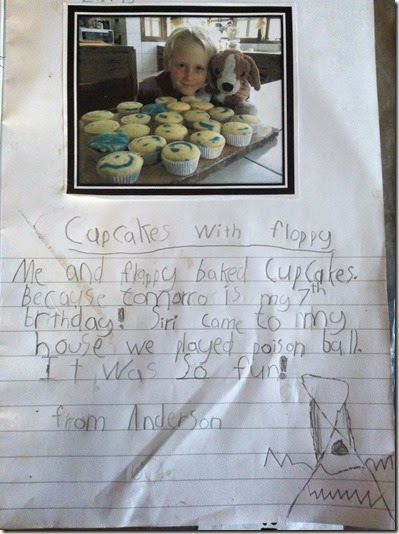 Cupcakes with floppy
Me and floppy baked Cupcakes.
Because tomorro is my 7th
brthday! Siri came to my
house we played poison ball.
It was so fun!
from Anderson